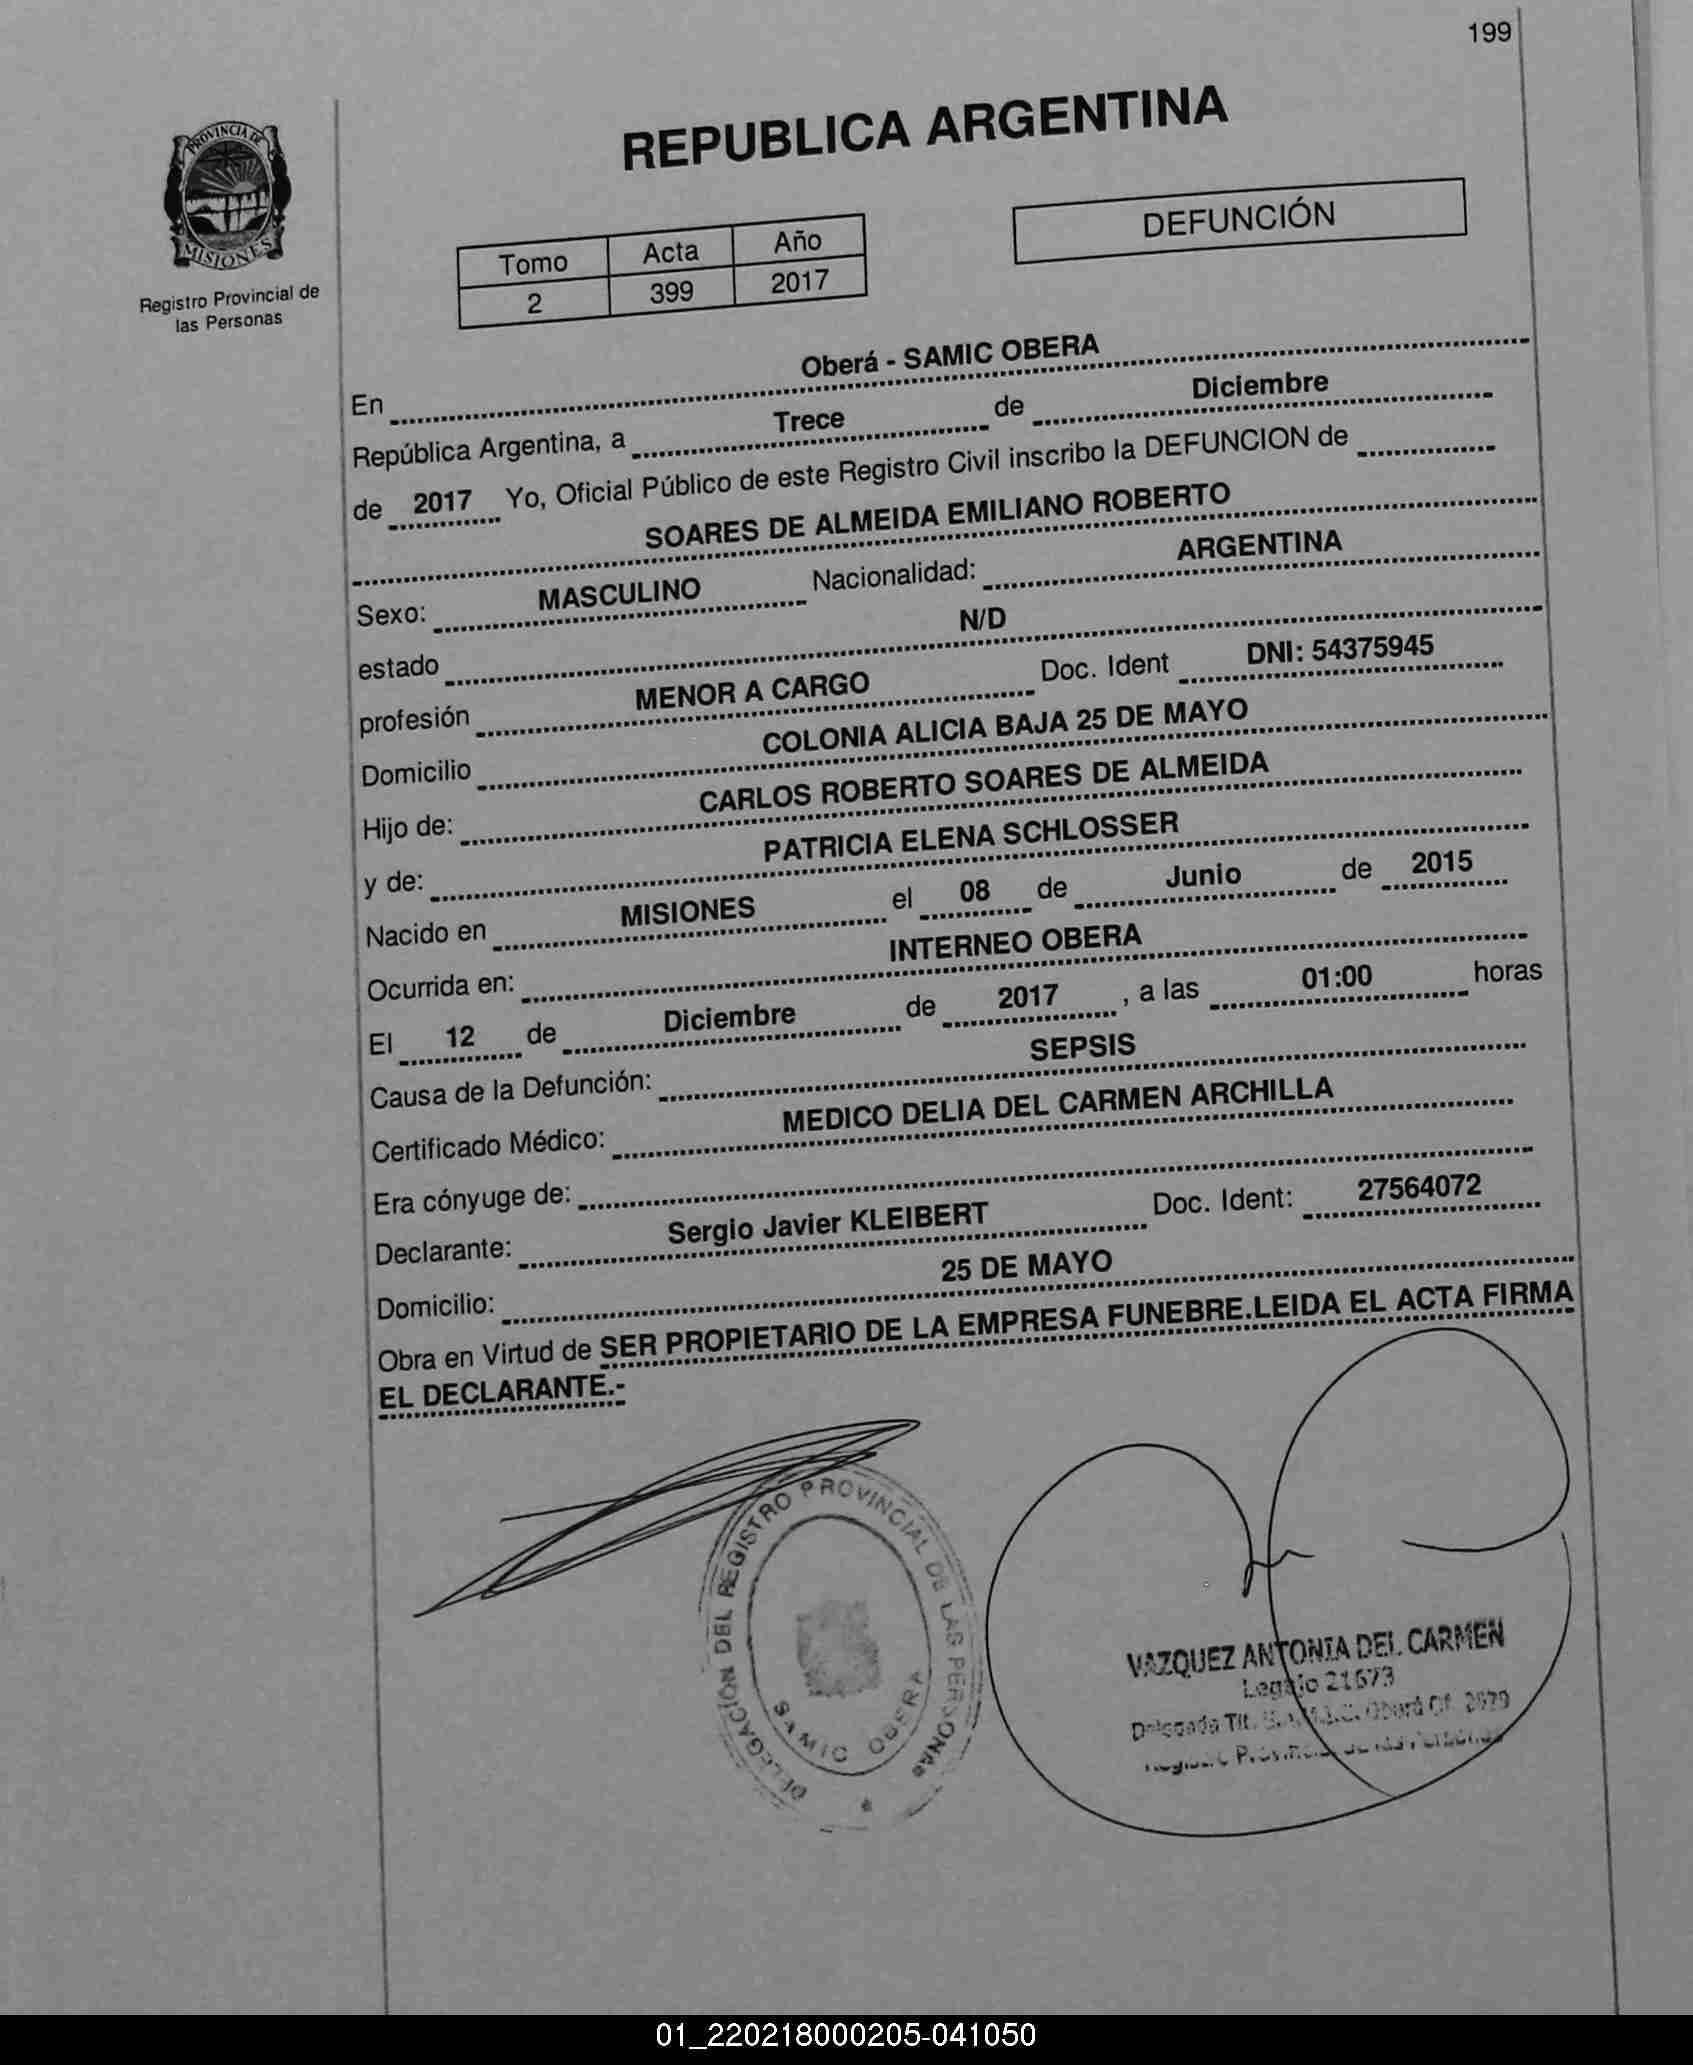 199
PROVINCIA DE
MISIONES
Registro Provincial de
las Personas
REPUBLICA ARGENTINA
Tomo Acta Año
2 399 2017
DEFUNCIÓN
En Oberá - SAMIC OBERA
República Argentina, a Trece de Diciembre
de 2017 Yo, Oficial Público de este Registro Civil inscribo la DEFUNCION de
SOARES DE ALMEIDA EMILIANO ROBERTO
Sexo: MASCULINO Nacionalidad: ARGENTINA
estado N/D
profesión MENOR A CARGO Doc. Ident DNI: 54375945
Domicilio COLONIA ALICIA BAJA 25 DE MAYO
Hijo de: CARLOS ROBERTO SOARES DE ALMEIDA
y de: PATRICIA ELENA SCHLOSSER
Nacido en MISIONES el 08 de Junio de 2015
Ocurrida en: INTERNEO OBERA
El 12 de Diciembre de 2017 , a las 01:00 horas
Causa de la Defunción: SEPSIS
Certificado Médico: MEDICO DELIA DEL CARMEN ARCHILLA
Era cónyuge de:
Declarante: Sergio Javier KLEIBERT Doc. Ident: 27564072
Domicilio: 25 DE MAYO
Obra en Virtud de SER PROPIETARIO DE LA EMPRESA FUNEBRE.LEIDA EL ACTA FIRMA
EL DECLARANTE.-
DELEGACIÓN DEL REGISTRO PROVINCIAL DE LAS PERSONAS
SAMIC OBERA
VAZQUEZ ANTONIA DEL CARMEN
Legajo 21673
Delegada Tit. Oberá Of. 2679
Registro Provincial de las Personas
01_220218000205-041050